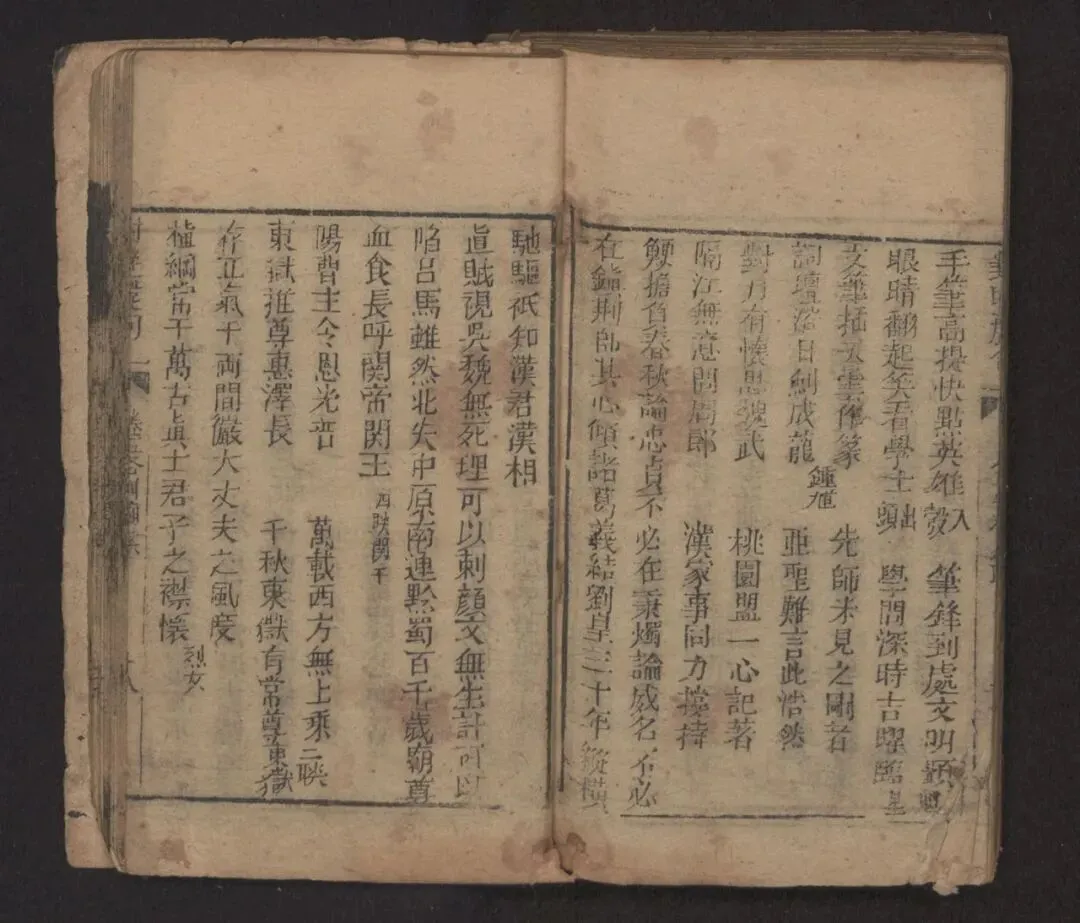 手筆高提快點英雄入彀　筆鋒到處文明顯
眼睛翻起笑看學士出頭　學問深時吉曜臨
文筆插天雲作篆　先師未見之剛者
詞壇落日劍成龍　鍾馗　亞聖難言此浩然
對刀有懷思魏武　桃園盟一心記著
隔江無意問周郎　漢家事同力撐持
鯁擔負春秋論忠貞不必在秉燭論威名不必
在鎮荊師其心傾諸葛義結劉皇三十年縱橫
馳驅祇知漢君漢相
眞賊視吳魏無死理可以刺顏文無生計可以
陷呂馬雖然北失中原南連黔蜀百千歲廟尊
血食長呼関帝関王
陽曹主令恩光普　萬載西方無上乘
東嶽推尊惠澤長　千秋東嶽有常尊　東嶽二聯
存正氣于兩間嚴大丈夫之風度
植綱常于萬古眞士君子之襟懷　烈女